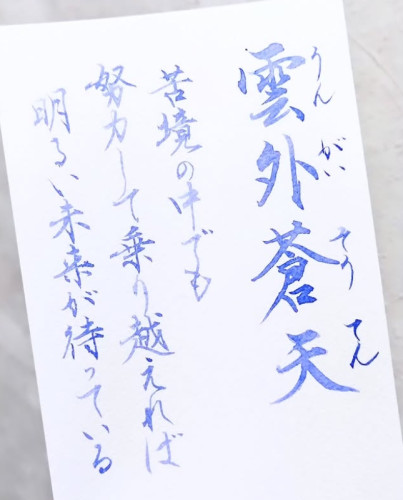 雲外蒼天
うんがいそうてん
苦境の中でも
努力して乗り越えれば
明るい未来が待っている